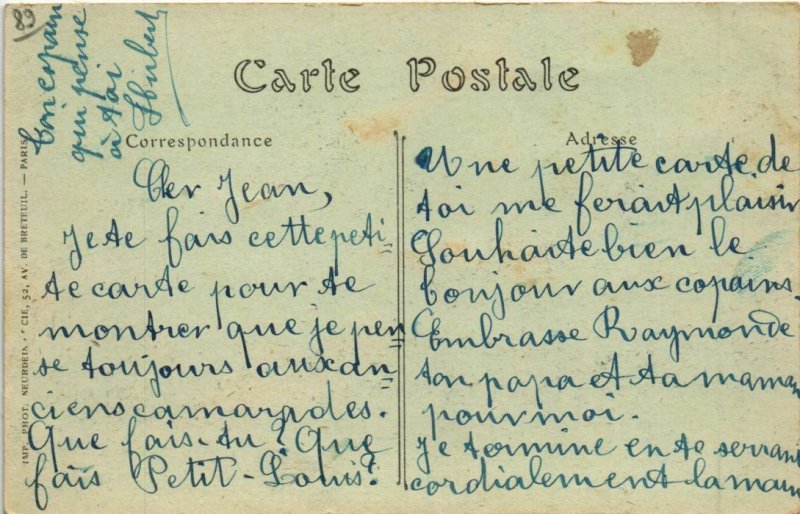 89
Carte Postale
Correspondance
Adresse
Cher Jean,
Je te fais cette peti=
te carte pour te
montrer que je pen=
se toujours aux an=
ciens camarades.
Que fais-tu? Que
fais Petit-Louis?
Une petite carte de
toi me ferait plaisir
Souhaite bien le
bonjour aux copains.
Embrasse Raymonde
ton papa et ta maman
pour moi.
Je termine en te serrant
cordialement la main
Ton copain
qui pense
à toi
IMP. PHOT. NEURDEIN ET CIE, 52, AV. DE BRETEUIL. — PARIS